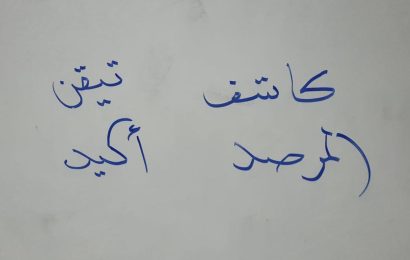 كاشف تيقن
المرصد أكيد